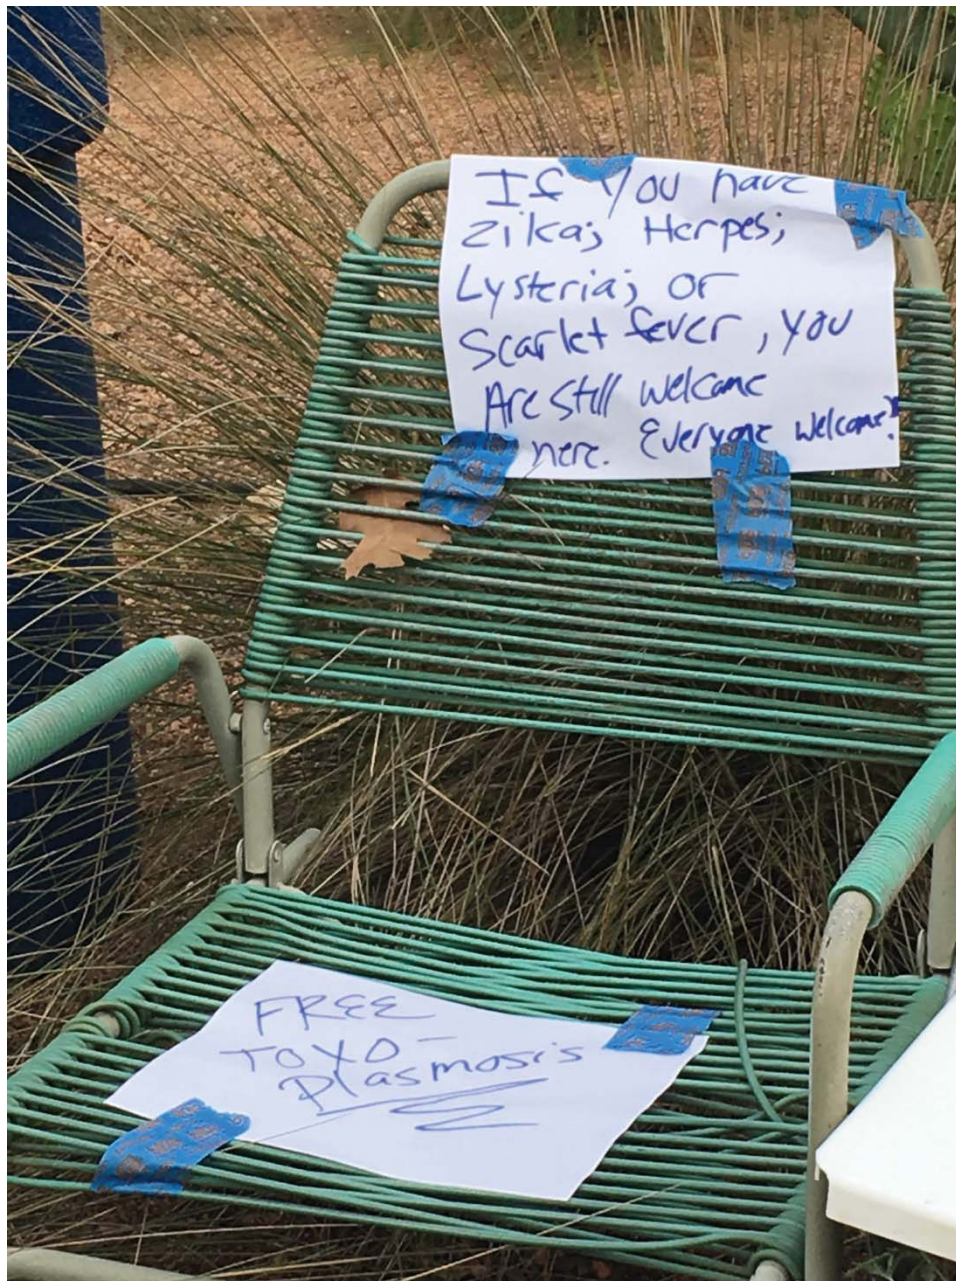 If You have
Zika; Herpes;
Lysteria; or
Scarlet fever, you
Are still welcome
here. Everyone welcome!
FREE
TOXO-
Plasmosis